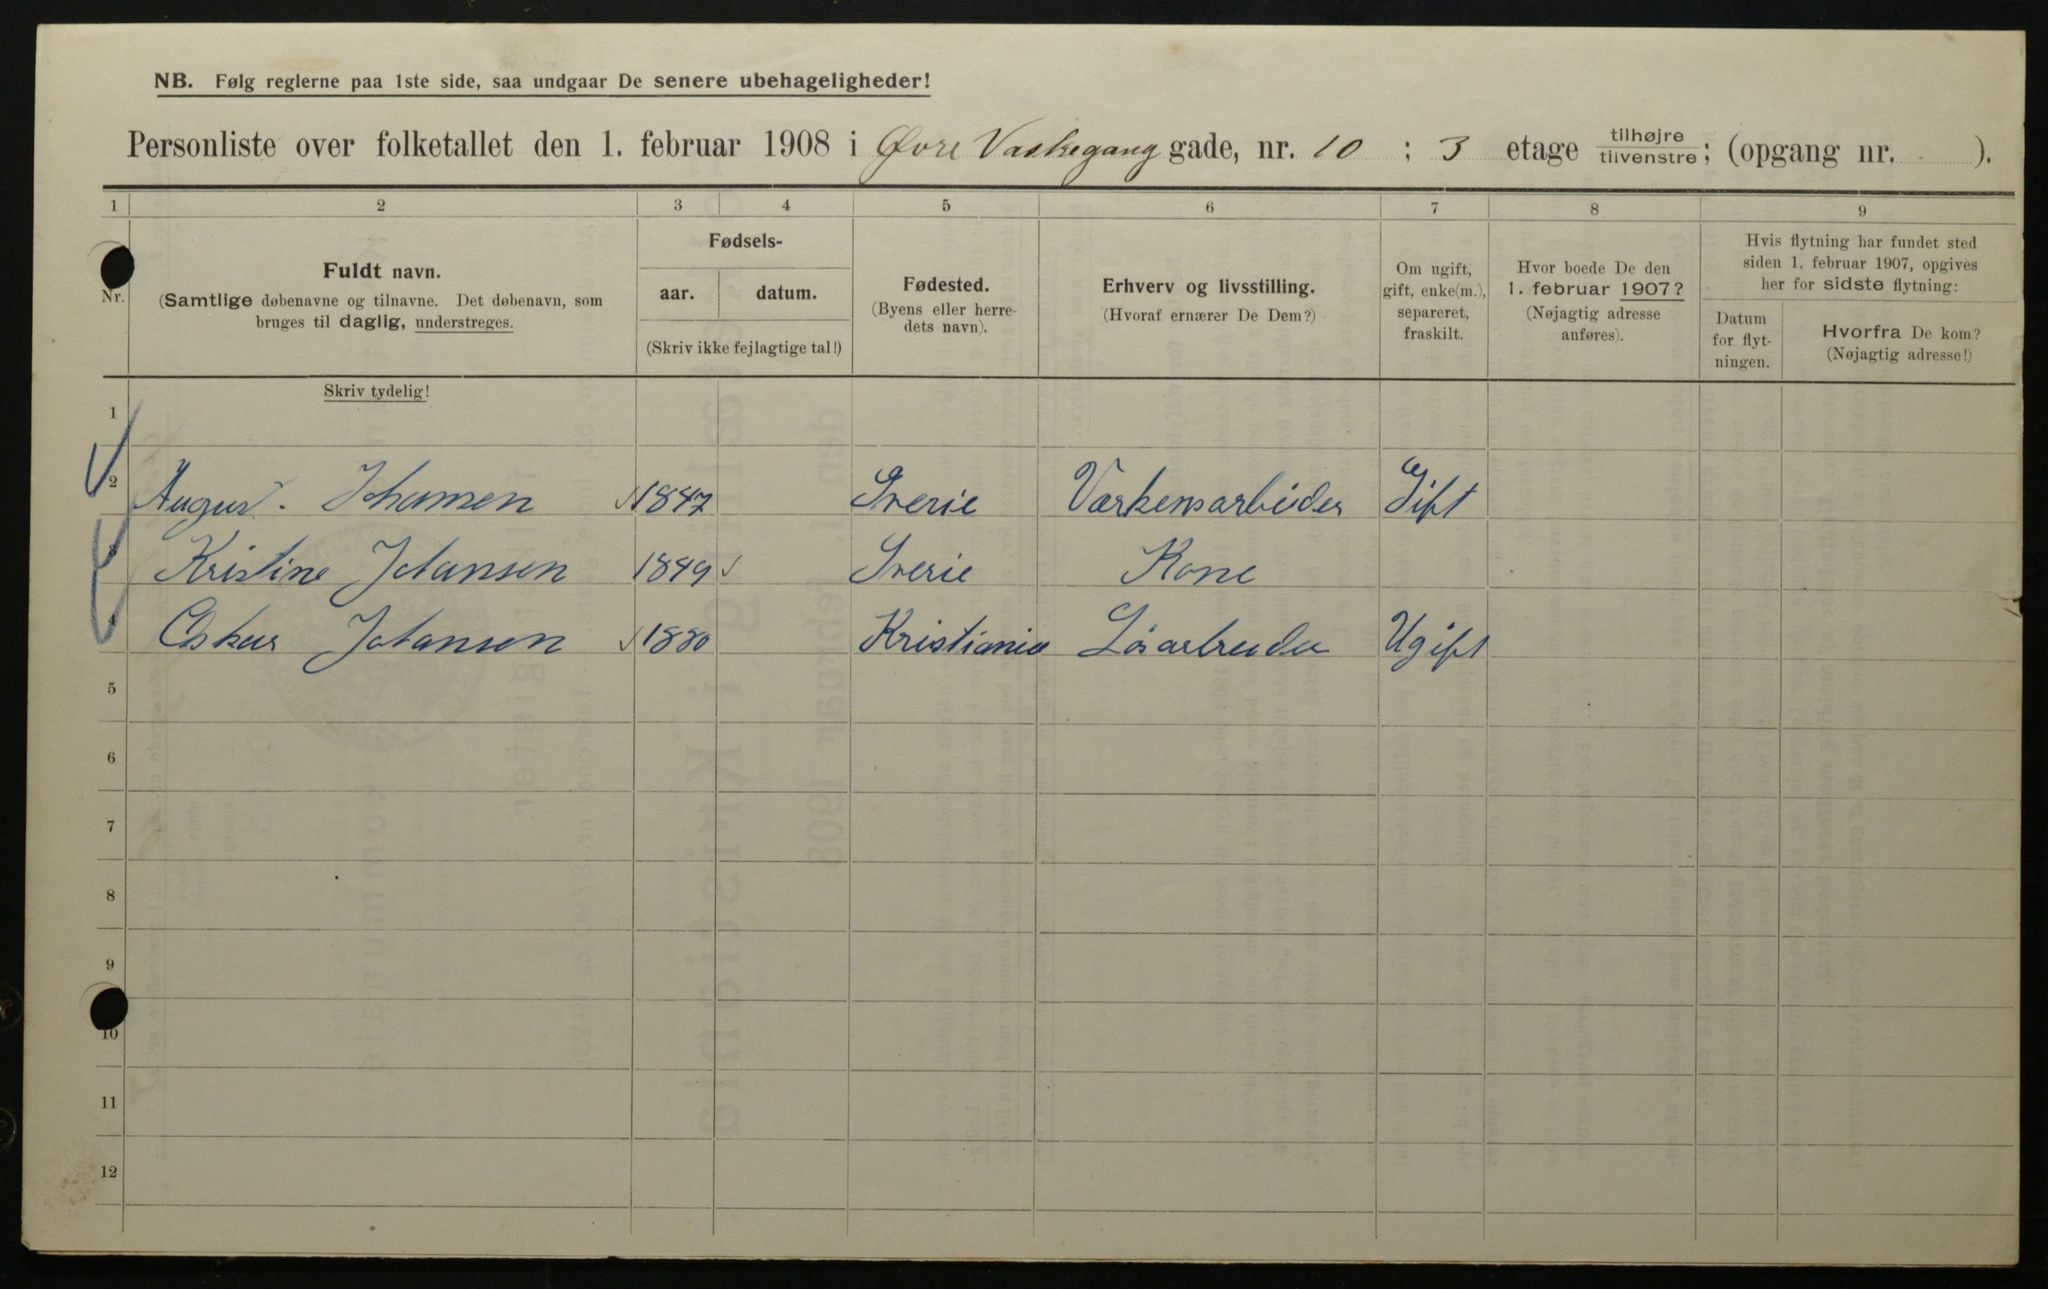 NB. Følg reglerne paa 1ste side, saa undgaar De senere ubehageligheder!
Personliste over folketallet den 1. februar 1908 i Øvre Vaskegang gade, nr. 10 ; 3 etage tilhøjre / tilvenstre; (opgang nr. ).
1 2 3 4 5 6 7 8 9
Nr.
Fuldt navn.
(Samtlige døbenavne og tilnavne. Det døbenavn, som
bruges til daglig, understreges.
Skriv tydelig!
Fødsels-
aar. datum.
(Skriv ikke fejlagtige tal!)
Fødested.
(Byens eller herre-
dets navn).
Erhverv og livsstilling.
(Hvoraf ernærer De Dem?)
Om ugift,
gift, enke(m.),
separeret,
fraskilt.
Hvor boede De den
1. februar 1907?
(Nøjagtig adresse
anføres).
Hvis flytning har fundet sted
siden 1. februar 1907, opgives
her for sidste flytning:
Datum
for flyt-
ningen.
Hvorfra De kom?
(Nøjagtig adresse!)
1
2 August. Johansen 1847 Sverie Værkensarbeider Gift
3 Kristine Johansen 1849 Sverie Kone
4 Oskar Johansen 1880 Kristiania Løsarbeider Ugift
5
6
7
8
9
10
11
12